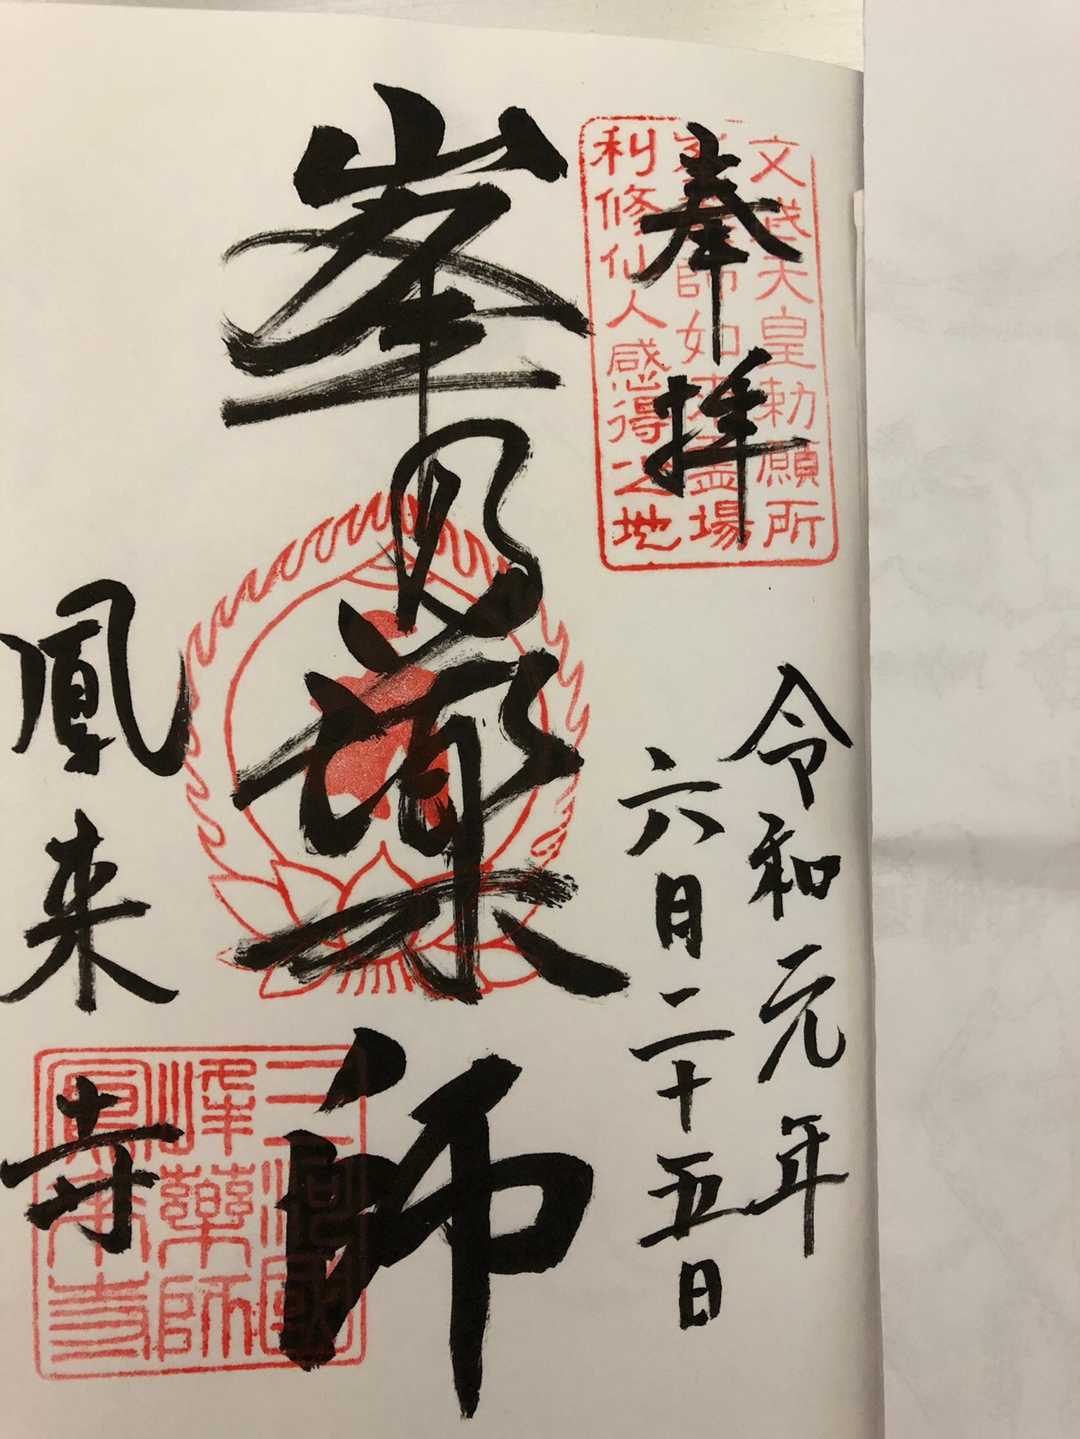 奉拝
文武天皇勅願所
峯薬師如来霊場
利修仙人感得之地
令和元年
六月二十五日
峯乃薬師
鳳来寺
三河國
峰藥師
鳳来寺